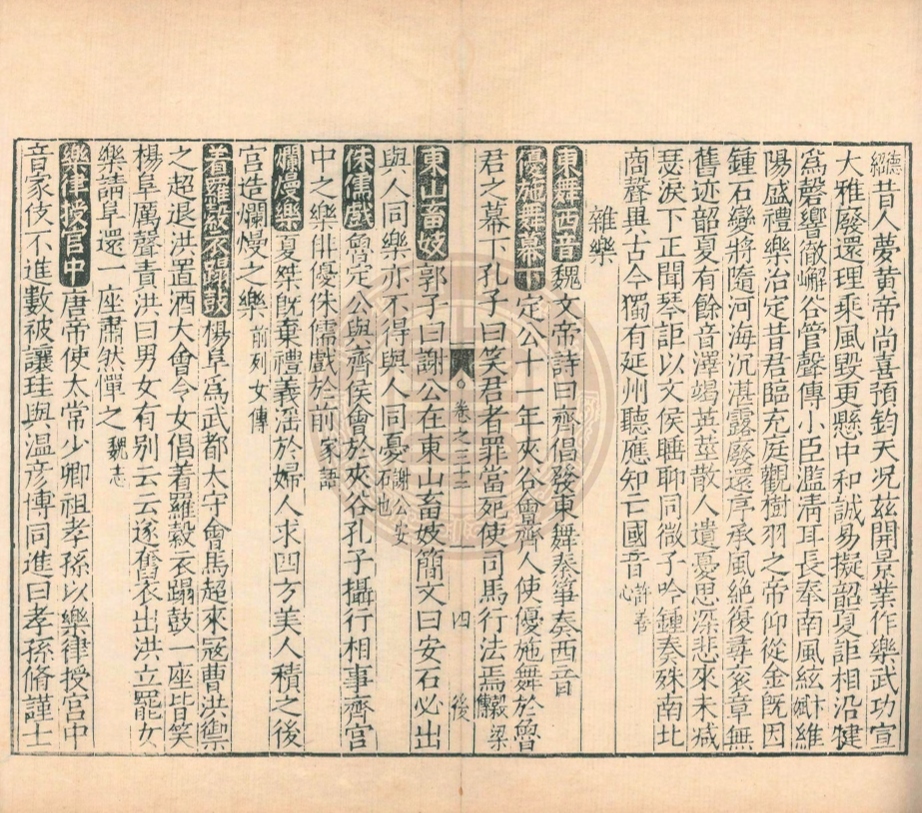 德紹昔人夢黃帝尚喜預鈞天况兹開景業作樂武功宣
大雅廢還理乘風毀更懸中和誠易擬韶夏詎相沿健
爲磬響徹嶰谷管聲傳小臣濫淸耳長奉南風絃維
陽盛禮樂治定昔君臨充庭觀樹羽之帝仰從金旣因
鍾石變將隨河海沉湛露廢還序承風絶復尋衮章無
舊迹韶夏有餘音澤竭英莖散人遺憂思深悲來未減
瑟淚下正聞琴詎以文侯睡聊同微子吟鍾奏殊南北
商聲異古今獨有延州聽應知亡國音許善心
雜樂
東舞西音魏文帝詩曰齊倡發東舞秦箏奏西音
優施舞幕下定公十一年夾谷會齊人使優施舞於魯
君之幕下孔子曰笑君者罪當死使司馬行法焉穀梁傳
東山畜妓郭子曰謝公在東山畜妓簡文曰安石必出
與人同樂亦不得與人同憂謝公安石也
侏儒戲魯定公與齊侯會於夾谷孔子攝行相事齊宫
中之樂俳優侏儒戲於前家語
爛熳樂夏桀旣棄禮義滛於婦人求四方美人積之後
宫造爛熳之樂前列女傳
着羅縠衣蹋鼓楊阜爲武都太守會馬超來冦曹洪禦
之超退洪置酒大會令女倡着羅縠之衣蹋鼓一座皆笑
楊阜厲聲責洪曰男女有别云云遂奮衣出洪立罷女
樂請阜還一座肅然憚之魏志
樂律授官中唐帝使太常少卿祖孝孫以樂律授宫中
音家伎不進數被讓珪與温彦博同進曰孝孫脩謹士
卷之三十二
四
後